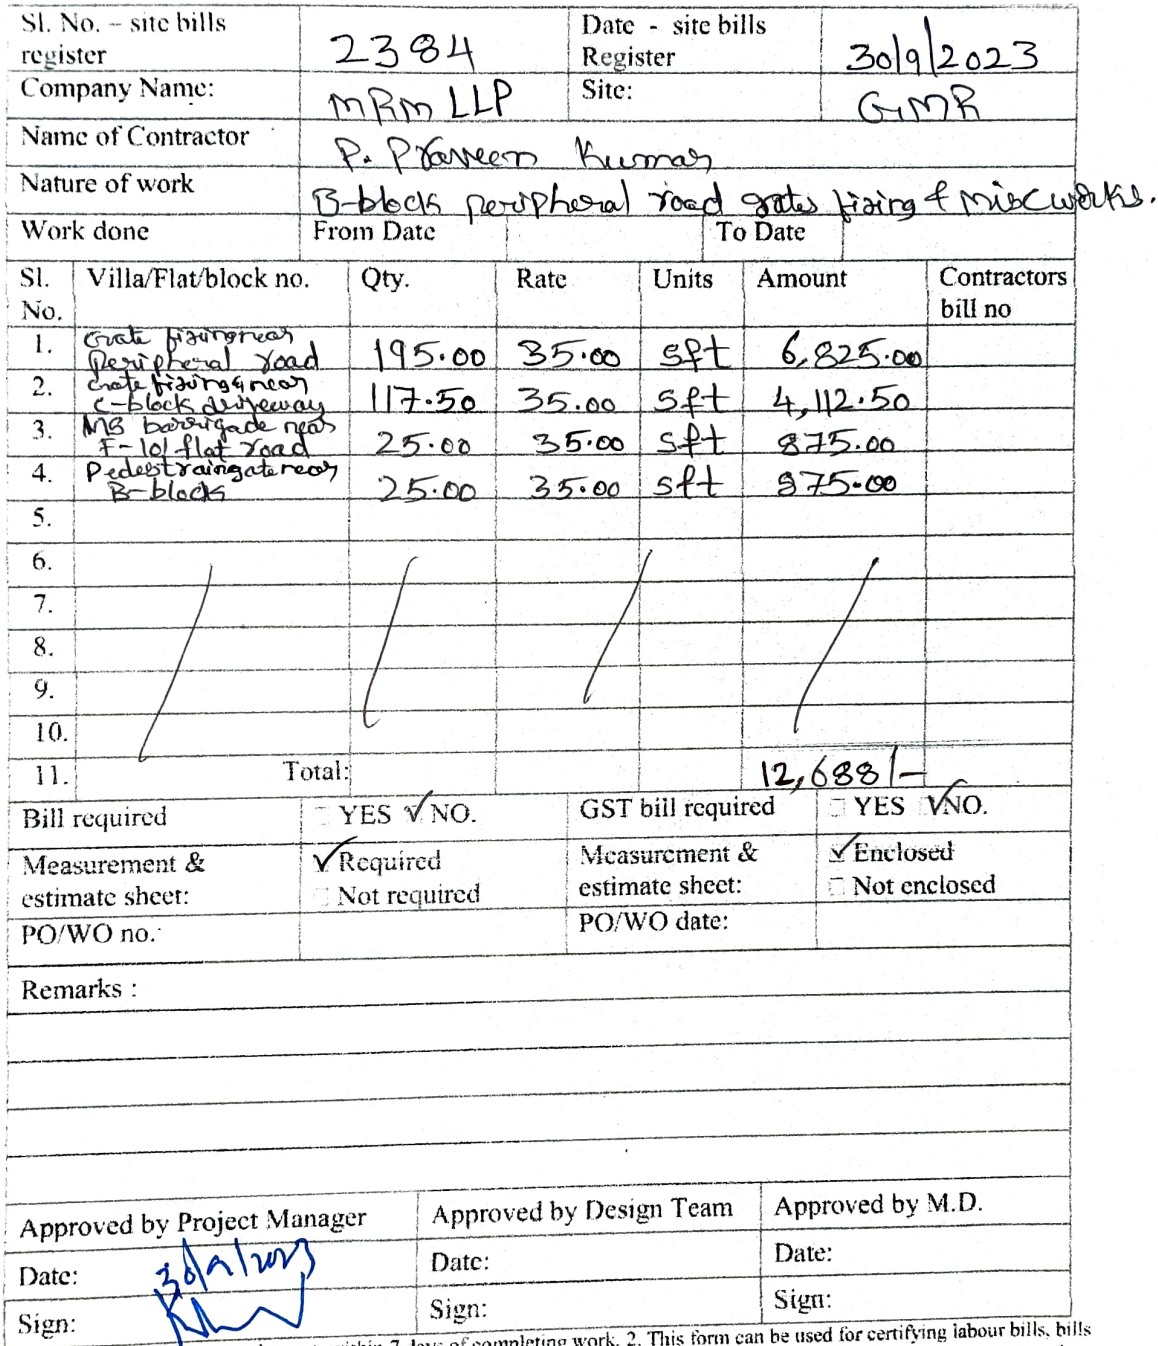 Sl. No. – site bills register 2384 Date - site bills Register 30/9/2023
Company Name: MRM LLP Site: GMR
Name of Contractor P. Praveen Kumar
Nature of work B-block peripheral road gates fixing & Misc works.
Work done From Date To Date
Sl. No. Villa/Flat/block no. Qty. Rate Units Amount Contractors bill no
1. Gate fixing near Peripheral road 195.00 35.00 sft 6,825.00
2. Gate fixing near C-block driveway 117.50 35.00 sft 4,112.50
3. MS barrigade near F-101 flat road 25.00 35.00 sft 875.00
4. Pedestrain gate near B-block 25.00 35.00 sft 875.00
5.
6.
7.
8.
9.
10.
11. Total: 12,688/-
Bill required YES ✓ NO. GST bill required YES ✓ NO.
Measurement & estimate sheet: ✓ Required Not required Measurement & estimate sheet: ✓ Enclosed Not enclosed
PO/WO no. PO/WO date:
Remarks :
Approved by Project Manager Approved by Design Team Approved by M.D.
Date: 30/9/2023 Date: Date:
Sign: Sign: Sign:
7 days of completing work. 2. This form can be used for certifying labour bills, bills